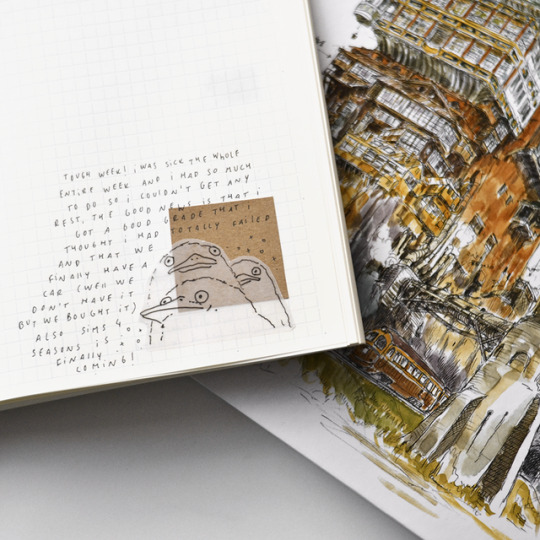 TOUGH WEEK! i WAS SiCK THE WHOLE
ENTiRE WEEK AND i HAD SO MUCH
TO DO SO i COULDN'T GET ANY
REST, THE GOOD NEWS iS THAT i
GOT A GOOD GRADE THAT i
THOUGHT i HAD TOTALLY FAiLED
AND THAT WE
FiNALLY HAVE A
CAR (WELL WE
DON'T HAVE iT
BUT WE BOUGHT iT)
ALSO SiMS 4
SEASONS iS
FiNALLY
COMiNG!